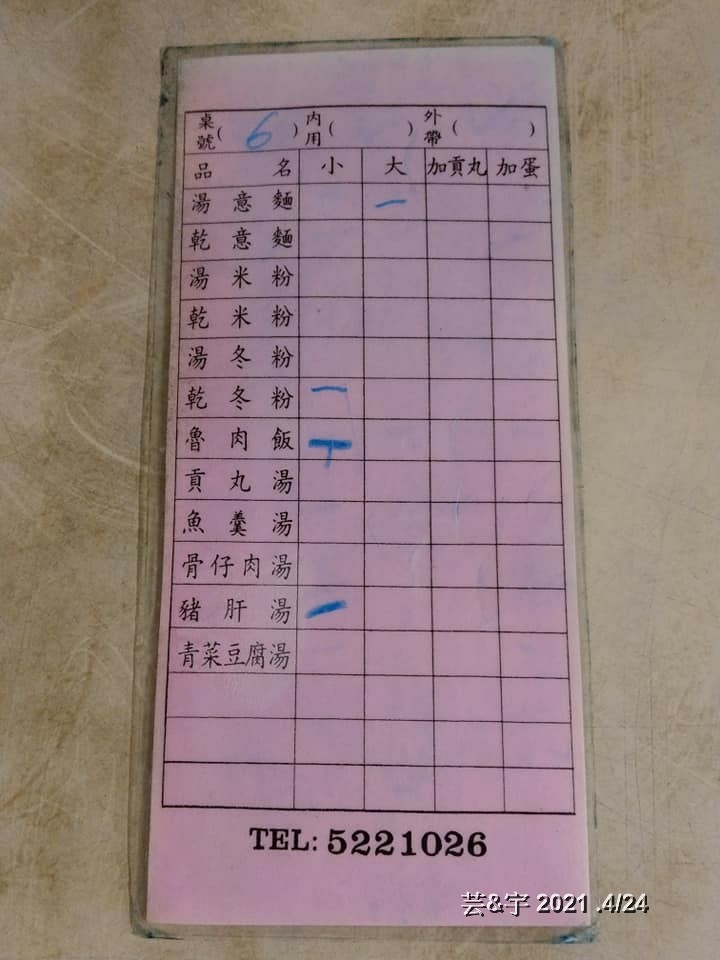 桌號(6) 內用( ) 外帶( )
品名 小 大 加貢丸 加蛋
湯意麵 一
乾意麵
湯米粉
乾米粉
湯冬粉
乾冬粉 一
魯肉飯 丅
貢丸湯
魚羹湯
骨仔肉湯
豬肝湯 一
青菜豆腐湯
TEL: 5221026
芸&宇 2021 .4/24